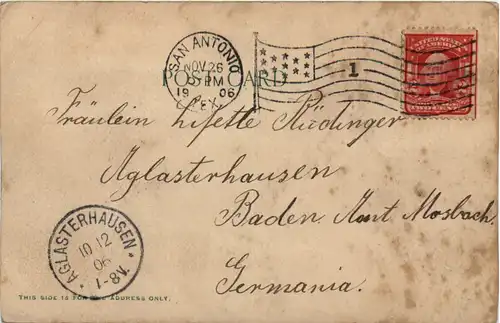 SAN ANTONIO
NOV 26
PM
1906
TEX.
1
UNITED STATES
OF AMERICA
POST CARD
Fräulein Lisette Rüdinger
Aglasterhausen
Baden Amt Mosbach.
Germania.
* AGLASTERHAUSEN *
10 12
06
1-8V.
THIS SIDE IS FOR THE ADDRESS ONLY.